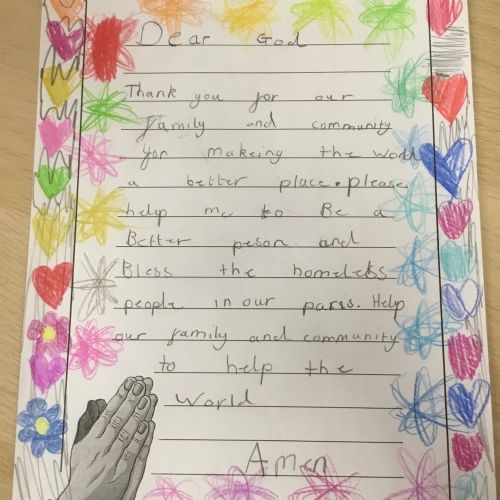 Dear God
Thank you for our
family and community
for makeing the world
a better place. please
help me to Be a
Better peson and
Bless the homeless
people in our paris. Help
our family and community
to help the
World
Amen